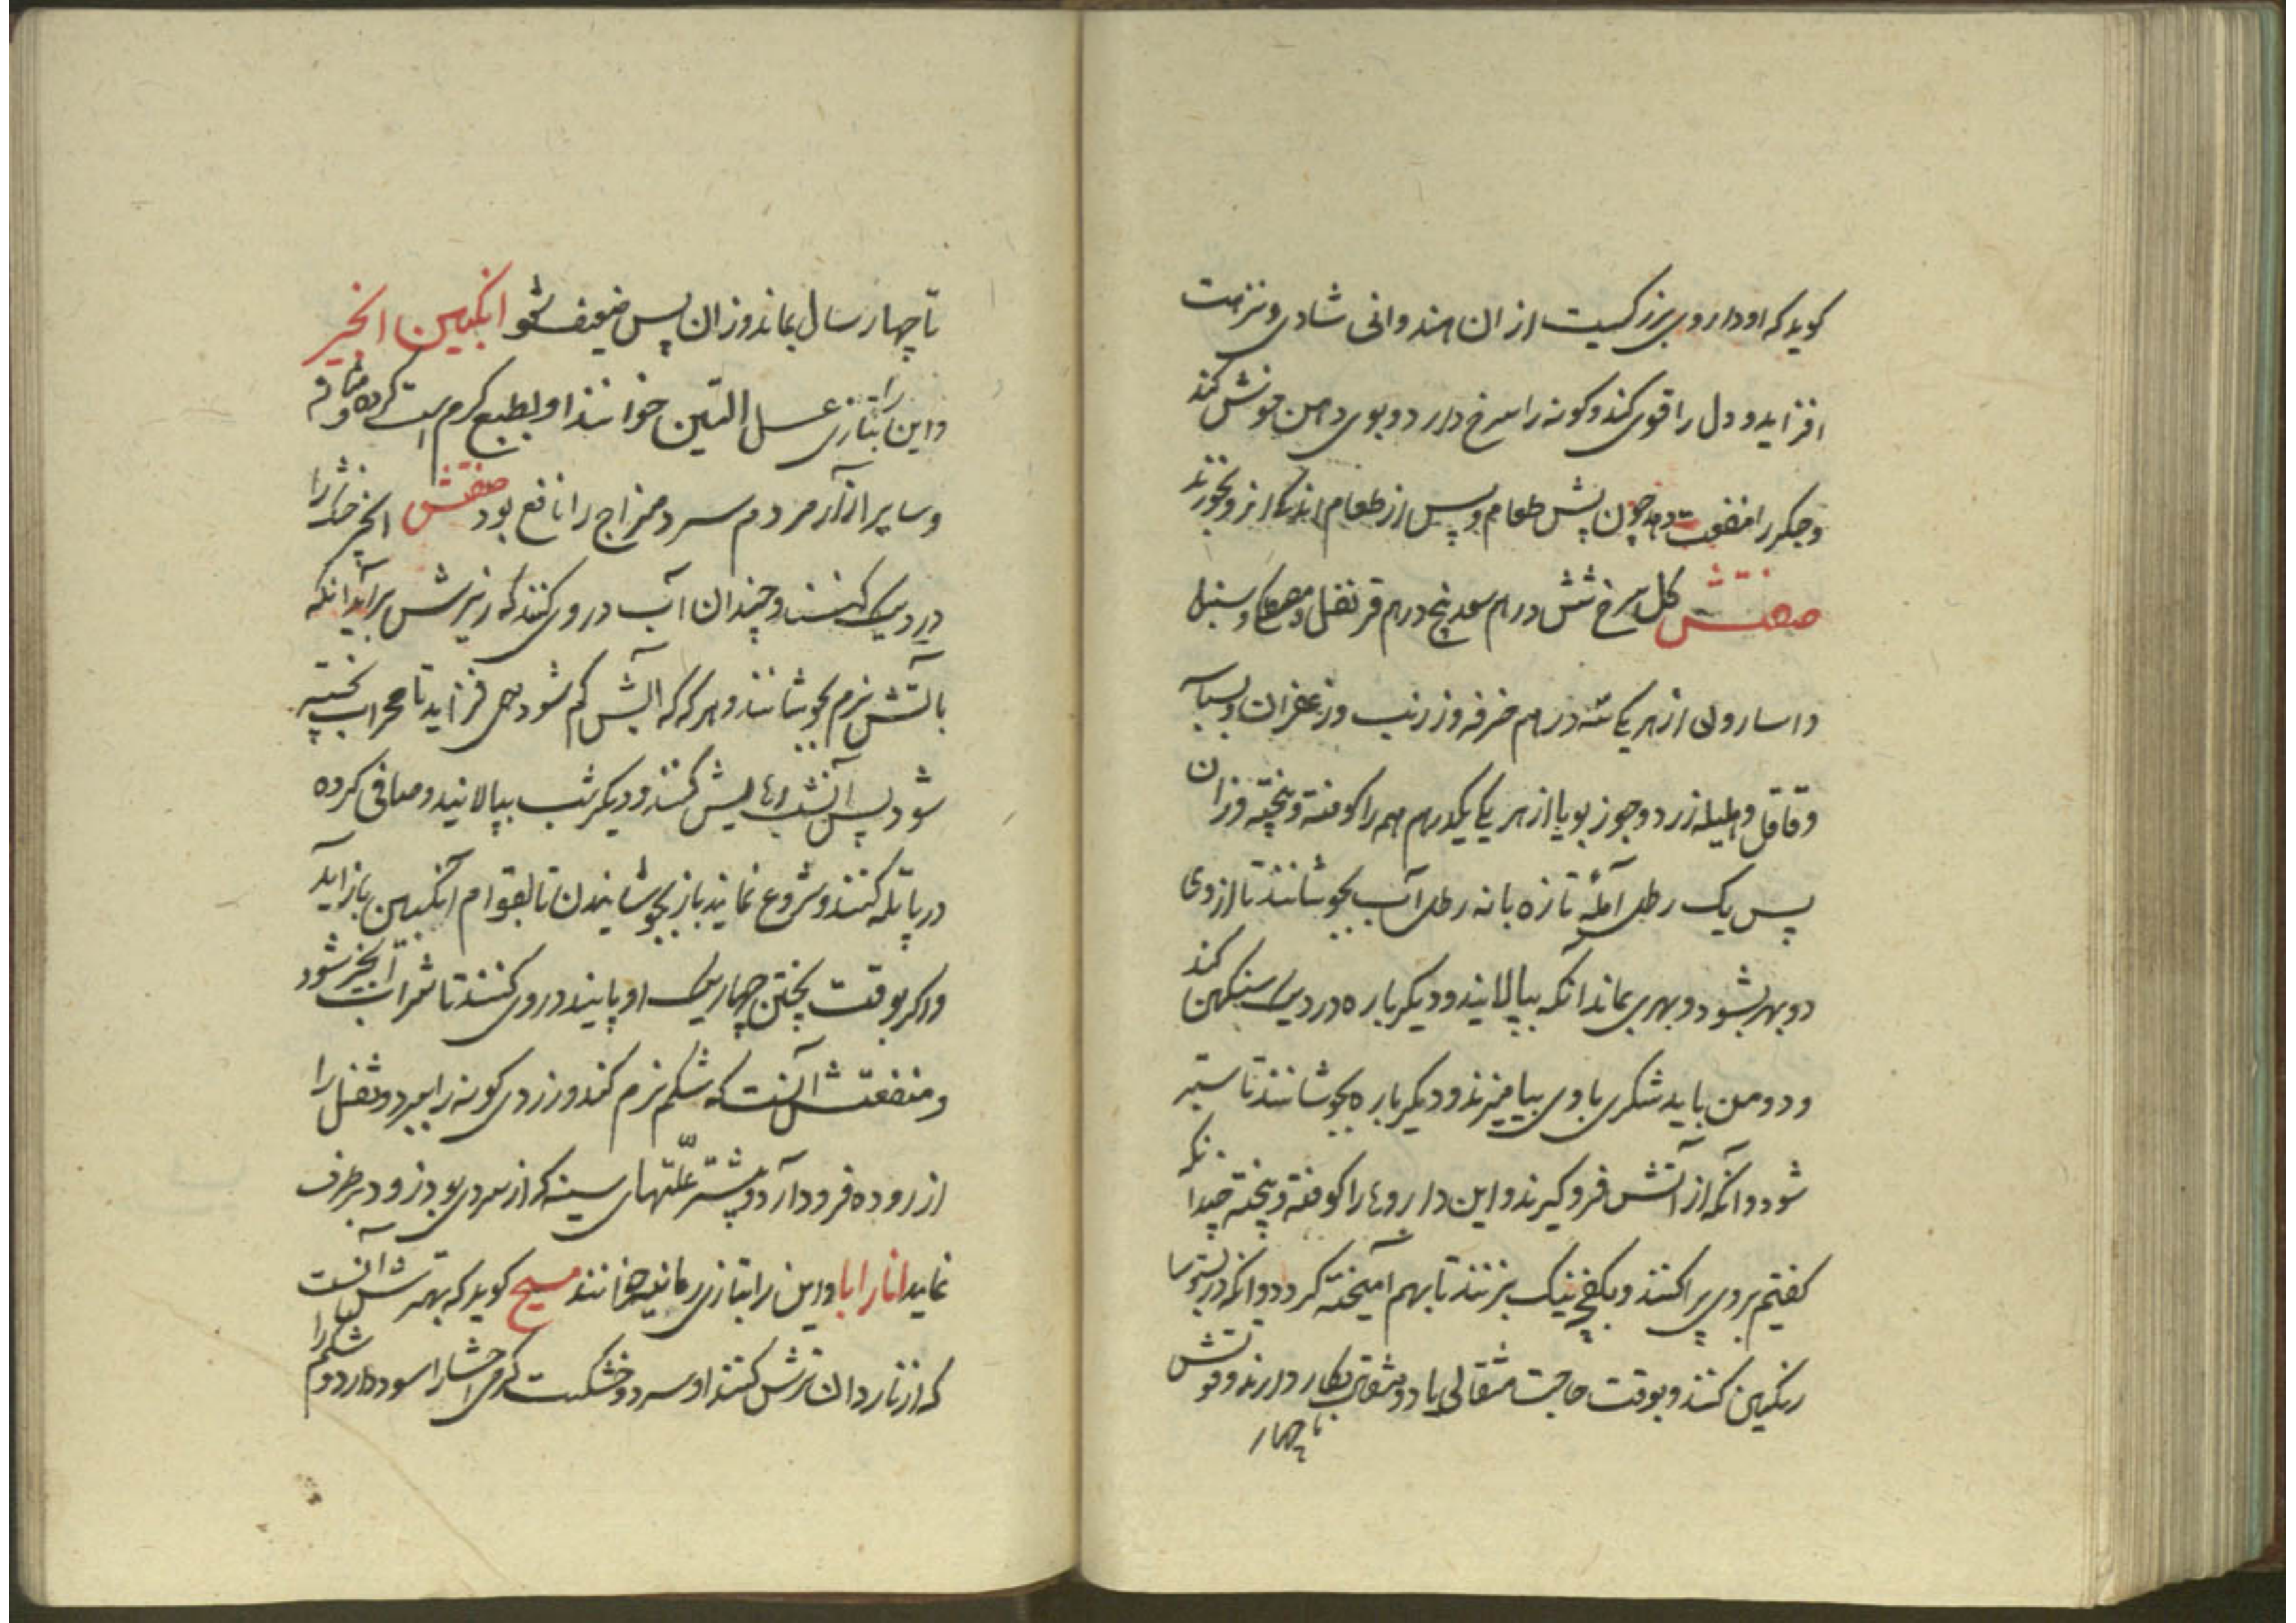 کوید که او داروی بزرکیست از ان هندوانی شادی و نزهت
افزاید و دل را قوی کند و کونه را سرخ دارد و بوی دهن خوش کند
و جکر را منفعت دهد چون پیش طعام و پس از طعام اندکی از و بخورند
صفتش کل سرخ شش درم سعد پنج درم قرنفل و مصطکی و سنبل
و اسارون از هر یکی سه درم خرفه و زرنب و زعفران و بسباسه
و قاقل و هلیله زرد و جوز بویا از هر یکی یکدرم همه را کوفته و بیخته وزان
پس یک رطل آمله تازه با نه رطل آب بجوشانند تا از وی
دو بهر بشود و بهری بماند انکه بپالایند و دیکر باره در دیک سنکین کنند
و دو من باید شکری با وی بیامیزند و دیکر باره بجوشانند تا ستبر
شود و آنکه از آتش فرو کیرند و این داروها را کوفته و بیخته چندانکه
کفتیم بر وی پراکنند و بکفچه نیک بزنند تا بهم آمیخته کردد و انکه در بستوها
رنکین کنند و بوقت حاجت مثقالی یا دو مثقال بکار دارند و قوتش
تا چهار
تا چهار سال بماند وزان پس ضعیف شود انکبین انجیر
و این را بتازی عسل التین خوانند او بطبع کرم است کرده و مثانه
و سایر از آن مردم سرد مزاج را نافع بود صفتش انجیر خشک را
در دیک کنند و چندان آب در وی کنند که زبرش برآید انکه
بآتش نرم بجوشانند و هر که که آبش کم شود همی فزاید تا مهرا پخته
شود پس آنشب رهایش کنند و دیکر شب بپالایند و صافی کرده
در پاتله کنند و شروع نمایند باز بجوشانیدن تا بقوام انکبین باز آید
و اکر بوقت پختن چهار یک او پانید در وی کنند تا شراب انجیر شود
و منفعتش آنست که شکم نرم کند و زردی کونه را ببرد و ثفل را
از روده فرود آرد و بیشتر علّتهای سینه که از سردی بود زود برطرف
نماید انار ابا و این را بتازی رمانیه خوانند مسیح کوید که بهترش آنست
که از ناردان ترش کنند او سرد و خشکست کرمی احشا را سود دارد و شکم را